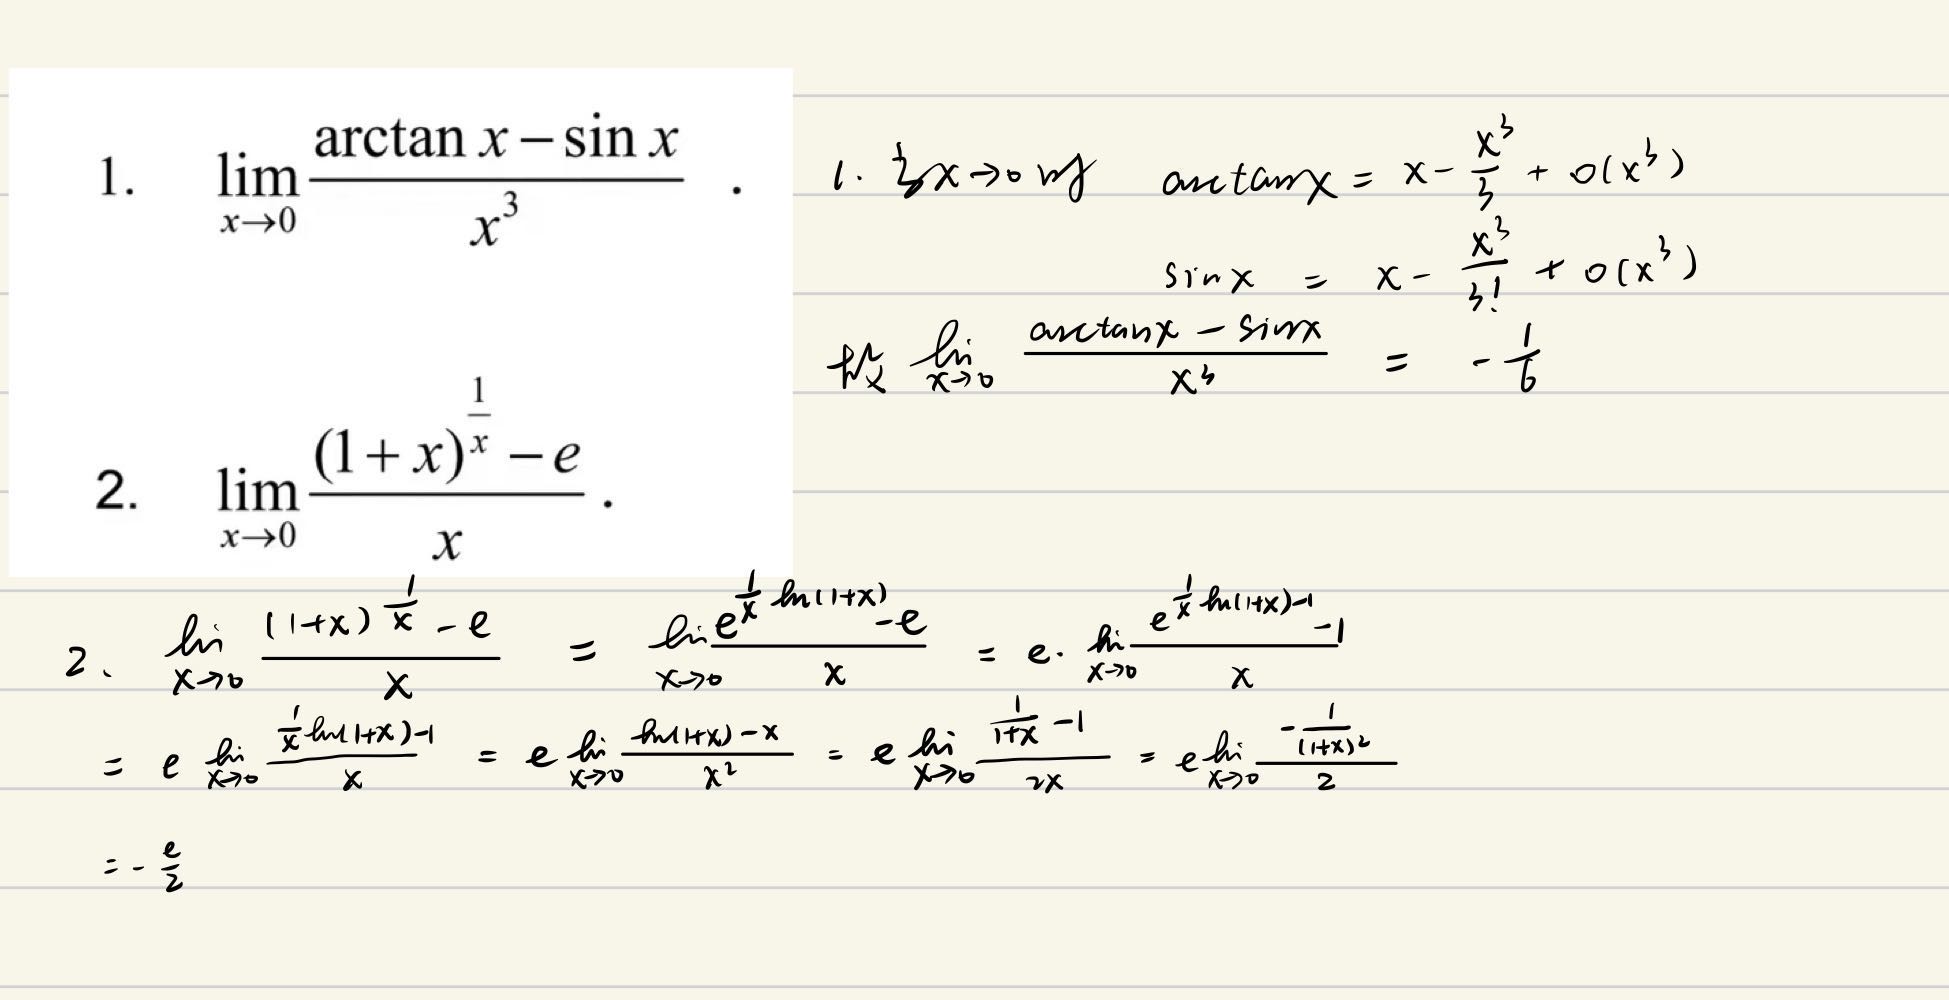 1. lim_{x→0} (arctan x − sin x)/x³ .
2. lim_{x→0} ((1+x)^{1/x} − e)/x .
1. 当x→0时 arctanx = x − x³/3 + o(x³)
sinx = x − x³/3! + o(x³)
故 lim_{x→0} (arctanx − sinx)/x³ = −1/6
2. lim_{x→0} ((1+x)^{1/x} − e)/x = lim_{x→0} (e^{1/x ln(1+x)} − e)/x = e· lim_{x→0} (e^{1/x ln(1+x)−1} − 1)/x
= e lim_{x→0} (1/x ln(1+x)−1)/x = e lim_{x→0} (ln(1+x)−x)/x² = e lim_{x→0} (1/(1+x) −1)/2x = e lim_{x→0} (−1/(1+x)²)/2
= − e/2